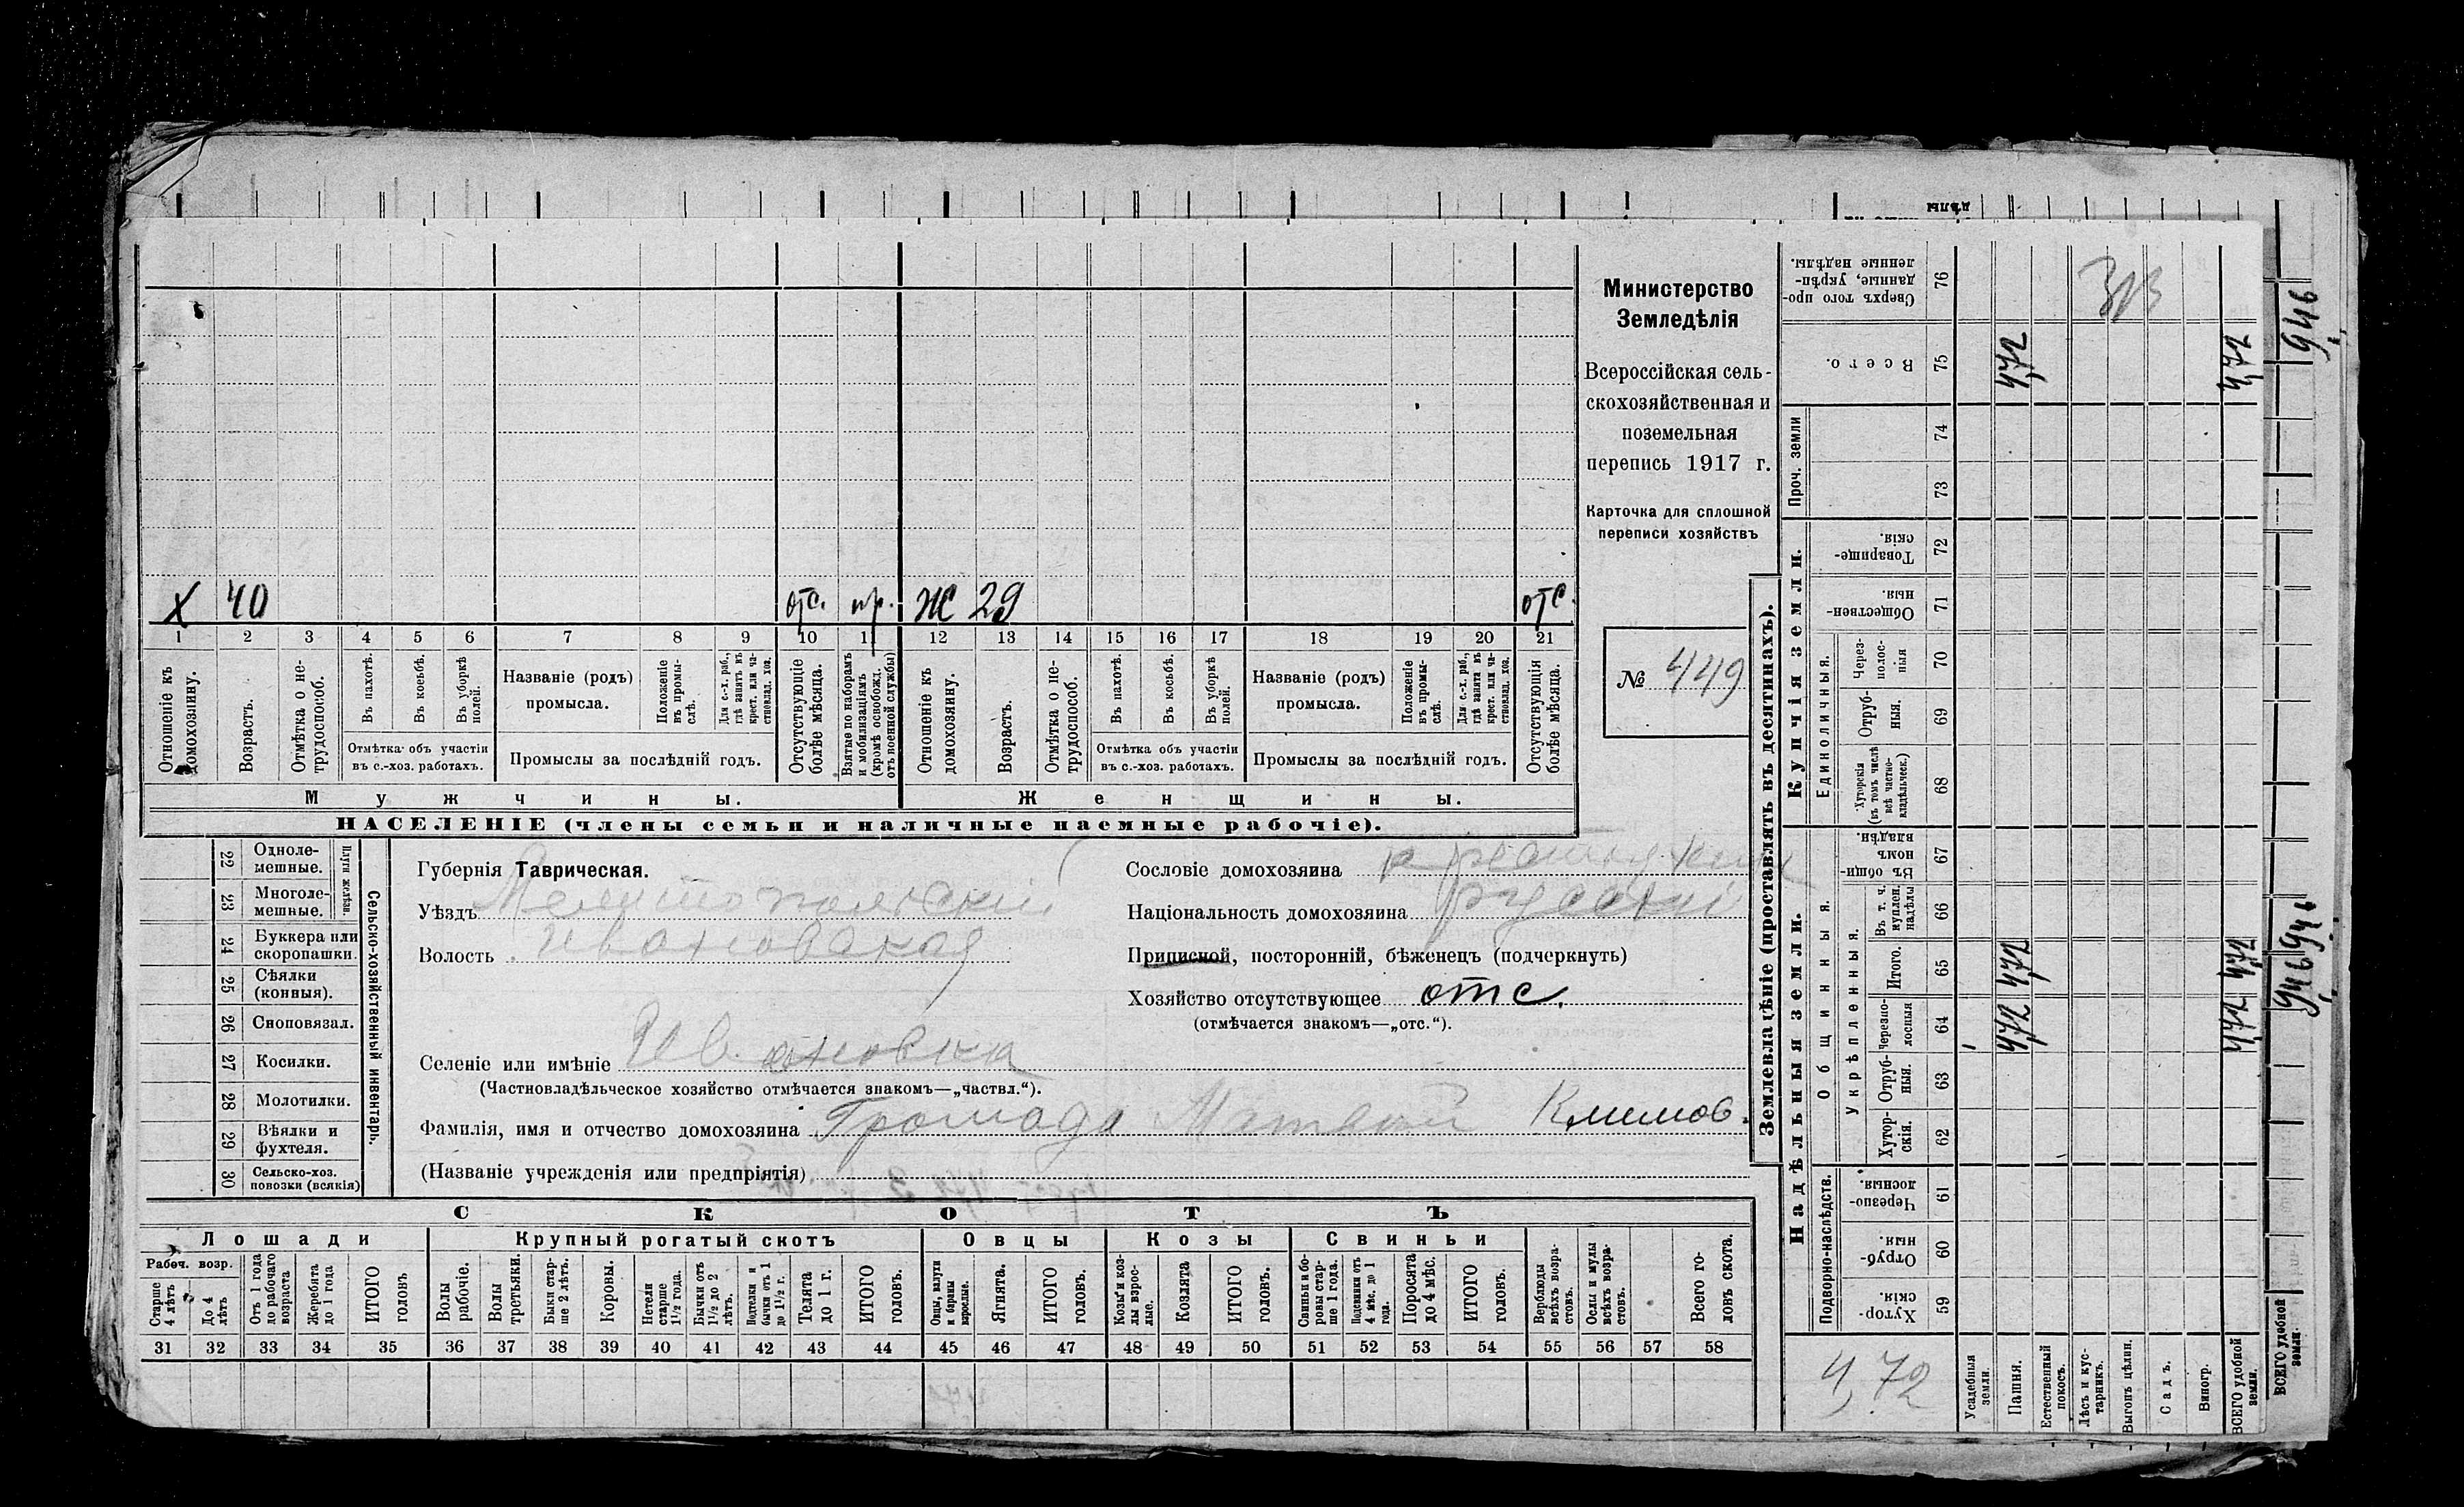 Министерство
Земледѣлія
Всероссійская сель-
скохозяйственная и
поземельная
перепись 1917 г.
Карточка для сплошной
переписи хозяйствъ
№ 449
Х 40 отс. пр. Ж 29 отс.
1 2 3 4 5 6 7 8 9 10 11 12 13 14 15 16 17 18 19 20 21
Отношеніе къ домохозяину.
Возрастъ.
Отмѣтка о не-трудоспособ.
Въ пахотѣ.
Въ косьбѣ.
Въ уборкѣ полей.
Отмѣтка объ участіи
въ с.-хоз. работахъ.
Названіе (родъ)
промысла.
Положеніе въ промы-слѣ.
Для с.-х. раб., гдѣ занятъ въ крест. или ча-ствовлад. хоз.
Промыслы за послѣдній годъ.
Отсутствующіе болѣе мѣсяца.
Взятые по наборамъ и мобилизаціямъ (кромѣ освобожд. отъ военной службы)
Отношеніе къ домохозяину.
Возрастъ.
Отмѣтка о не-трудоспособ.
Въ пахотѣ.
Въ косьбѣ.
Въ уборкѣ полей.
Отмѣтка объ участіи
въ с.-хоз. работахъ.
Названіе (родъ)
промысла.
Положеніе въ промы-слѣ.
Для с.-х. раб., гдѣ занята въ крест. или ча-ствовлад. хоз.
Промыслы за послѣдній годъ.
Отсутствующія болѣе мѣсяца.
Мужчины. Женщины.
НАСЕЛЕНІЕ (члены семьи и наличные наемные рабочіе).
22 Однолемешные.
23 Многолемешные.
Плуги желѣзн.
24 Буккера или скоропашки.
25 Сѣялки (конныя).
26 Сноповязал.
27 Косилки.
28 Молотилки.
29 Вѣялки и фухтеля.
30 Сельско-хоз. повозки (всякія)
Сельско-хозяйственный инвентарь.
Губернія Таврическая.
Уѣздъ Мелитопольскій
Волость Ивановская
Селеніе или имѣніе Ивановка
(Частновладѣльческое хозяйство отмѣчается знакомъ—„частвл.“).
Фамилія, имя и отчество домохозяина Громада Матвей Климов.
(Названіе учрежденія или предпріятія)
Сословіе домохозяина
Національность домохозяина русскій
Приписной, посторонній, бѣженецъ (подчеркнуть)
Хозяйство отсутствующее отс.
(отмѣчается знакомъ—„отс.“).
СКОТЪ
Лошади Крупный рогатый скотъ Овцы Козы Свиньи
Рабоч. возр.
Старше 4 лѣтъ
До 4 лѣтъ
Отъ 1 года до рабочаго возраста
Жеребята до 1 года
ИТОГО головъ
Волы рабочіе.
Волы третьяки.
Быки стар-ше 2 лѣтъ.
Коровы.
Нетели старше 1½ года.
Бычки отъ 1½ до 2 лѣтъ.
Подтелки и бычки отъ 1 до 1½ г.
Телята до 1 г.
ИТОГО головъ.
Овцы, валухи и бараны взрослые.
Ягнята.
ИТОГО головъ.
Козы и коз-лы взрос-лые.
Козлята
ИТОГО головъ.
Свиньи и бо-ровы стар-ше 1 года.
Подсвинки отъ 4 мѣс. до 1 года.
Поросята до 4 мѣс.
ИТОГО головъ.
Верблюды всѣхъ возра-стовъ.
Ослы и мулы всѣхъ возра-стовъ.
Всего го-ловъ скота.
31 32 33 34 35 36 37 38 39 40 41 42 43 44 45 46 47 48 49 50 51 52 53 54 55 56 57 58
Землевладѣніе (проставлять въ десятинахъ).
Надѣльныя земли. Купчія земли. Проч. земли
Подворно-наслѣдств.
Общинныя.
Укрѣпленныя.
Единоличныя.
59 Хутор-скія.
60 Отруб-ныя.
61 Черезпо-лосныя.
62 Хутор-скія.
63 Отруб-ныя.
64 Черезпо-лосныя 4,72 4,72
65 Итого. 4,72 4,72
66 Въ т. ч. куплен. надѣлы
67 Въ общин-номъ владѣн.
68 Хуторскія (въ томъ числѣ всѣ частно-владѣльческ.)
69 Отруб-ныя.
70 Через-полос-ныя
71 Обществен-ныя.
72 Товарище-скія.
73
74
75 Всего. 4,72 4,72
76 Сверхъ того про-данные, укрѣп-ленные надѣлы.
4,72
Усадебныя земли.
Пашня.
Естественный покосъ.
Лѣсъ и кус-тарникъ.
Выгонъ цѣлин.
Садъ.
Виногр.
ВСЕГО удобной земли.
ВСЕГО удобной земли.
946
946
946